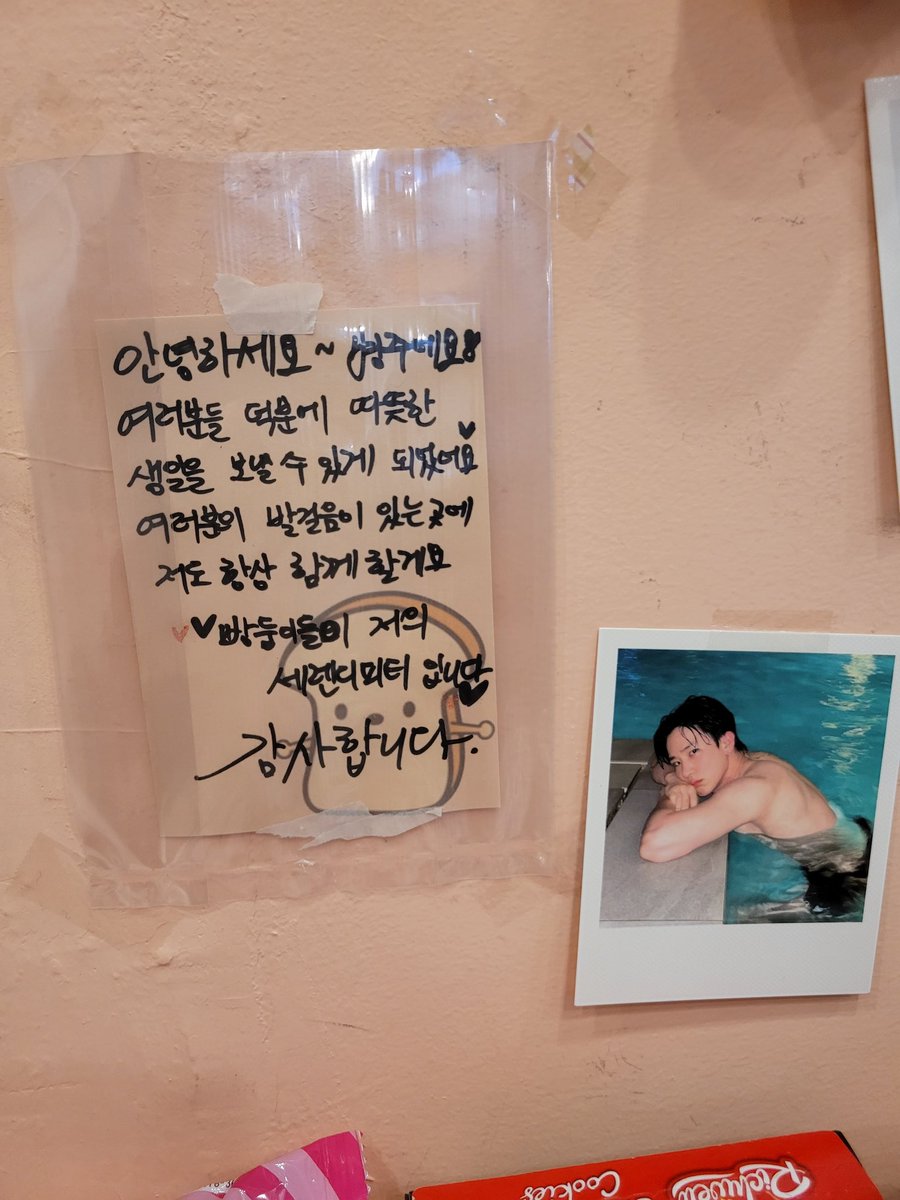 안녕하세요~
여러분들 덕분에 따뜻한
생일을 보낼 수 있게 되었어요
여러분의 발걸음이 있는 곳에
저도 항상 함께 할게요
빵둥이들이 저의
세렌디피터 입니다
감사합니다.
Cookies